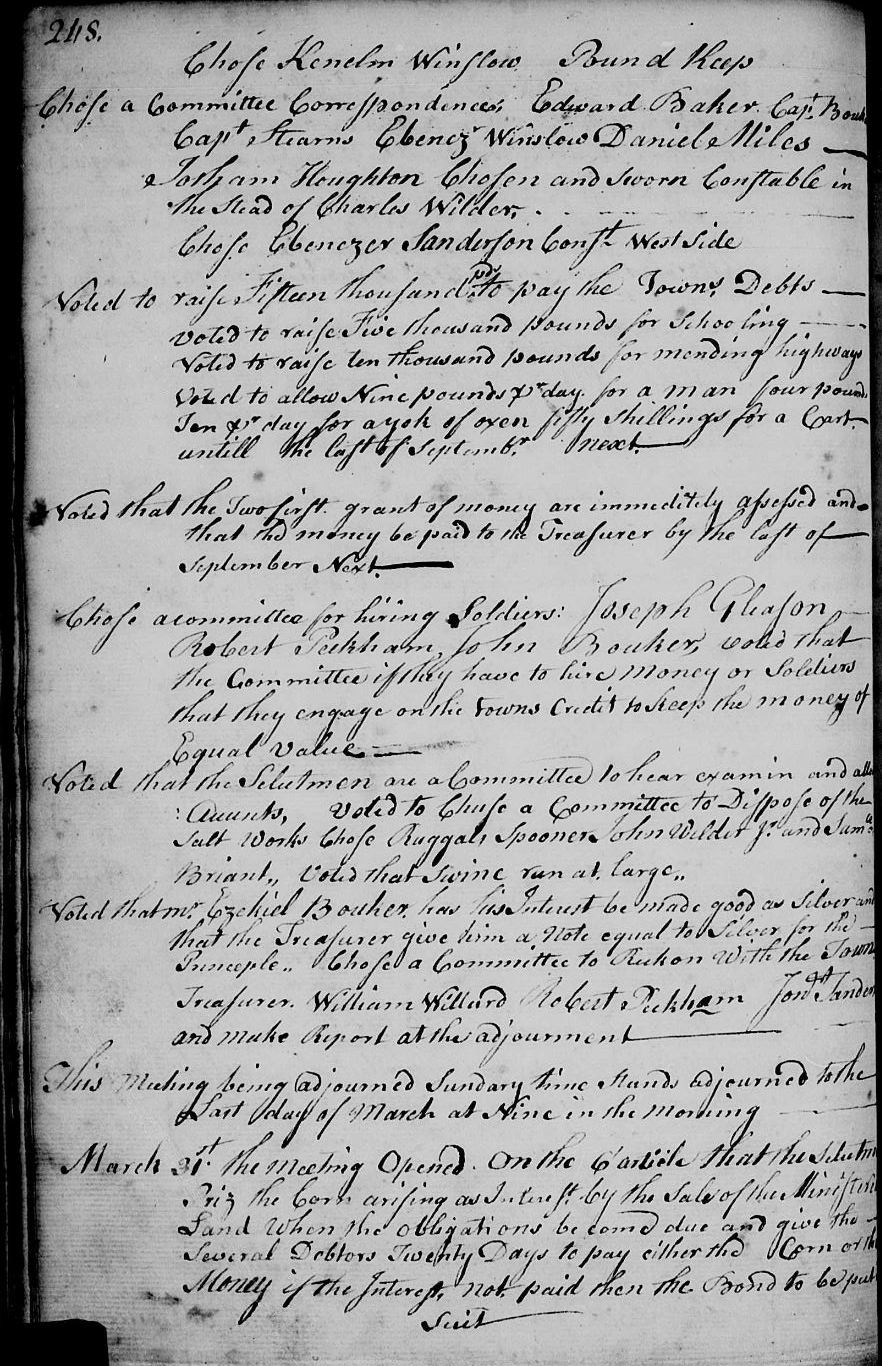 248.
Chose Kenelm Winslow Pound Keep
Chose a Committee Correspondences, Edward Baker. Capt. Bouk
Capt Stearns Ebenezr Winslow Daniel Miles
Jotham Houghton Chosen and Sworn Constable in
the Stead of Charles Wilder,
Chose Ebenezer Sanderson Const West Side
Voted to raise Fifteen thousand pds to pay the Towns, Debts
voted to raise Five thousand pounds for Schooling
Voted to raise ten thousand pounds for mending highways
Voted to allow Nine pounds pr day. for a man four pounds
Ten pr day for a yok of oxen fifty shillings for a Cart.
untill the last of Septembr. next.
Voted that the Two first. grant of money are immeditly assessed and
that the money be paid to the Treasurer by the last of
September Next.
Chose acommittee for hiring Soldiers: Joseph Gleason
Robert Peckham, John Bouker, voted that
the Committee if they have to hire Money or Soldiers
that they engage on the towns Credit to keep the money of
Equal value
Voted that the Selectmen are a Committee to hear examin and allo
: Acunts, Voted to Chuse a Committee to Dispose of the
Salt Works Chose Ruggals Spooner John Wilder Jr. and Saml
Briant,, Voted that Swine run at, large,,
Voted that mr. Ezekiel Bouker, has his Interest be made good as Silver and
that the Treasurer give him a Note equal to Silver for the
Princeple,, Chose a Committee to Rickon With the Town
Treasurer. William Willard Robert Peckham Jont Sander
and make Report at the adjourment
This Meeting being adjourned Sundary time Stands adjourned to the
Last day of March at Nine in the morning
March 31st. the meeting Opened. On the 6 article that the Selectm
Priz the Corn arising as Interest, by the Sale of the Ministeri
Land When the obligations be come due and give the
Several Debtors Twenty Days to pay either the Corn or the
Money if the Interest, not, paid then the Bond to be put
Suit